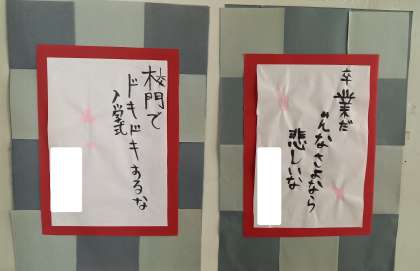 校門で
ドキドキするな
入学式
卒業だ
みんなさよなら
悲しいな